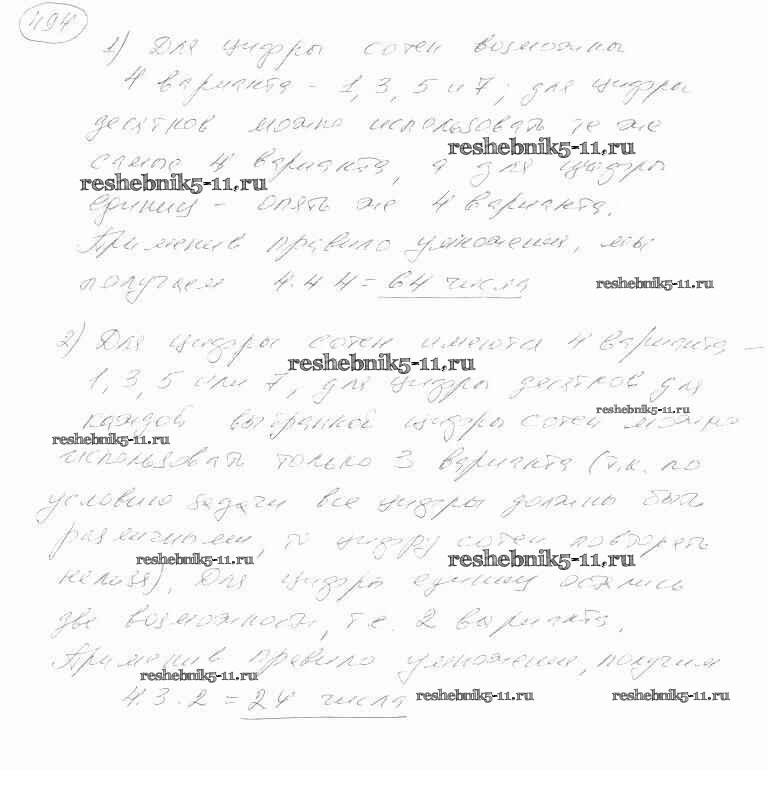 494
1) Для цифры сотен возможны
4 варианта - 1, 3, 5 и 7; для цифры
десятков можно использовать те же
reshebnik5-11.ru
самые 4 варианта, а для цифры
reshebnik5-11.ru
единиц - опять же 4 варианта.
Применив правило умножения, мы
получаем 4·4·4 = 64 числа
reshebnik5-11.ru
2) Для цифры сотен имеются 4 варианта -
reshebnik5-11.ru
1, 3, 5 или 7, для цифры десятков для
reshebnik5-11.ru
каждой выбранной цифры сотен можно
reshebnik5-11.ru
использовать только 3 варианта (т.к. по
условию задачи все цифры должны быть
различными, то цифру сотен повторять
reshebnik5-11.ru
reshebnik5-11.ru
нельзя). Для цифры единиц остались
две возможности, т.е. 2 варианта.
Применив правило умножения, получим
reshebnik5-11.ru
4·3·2 = 24 числа
reshebnik5-11.ru
reshebnik5-11.ru